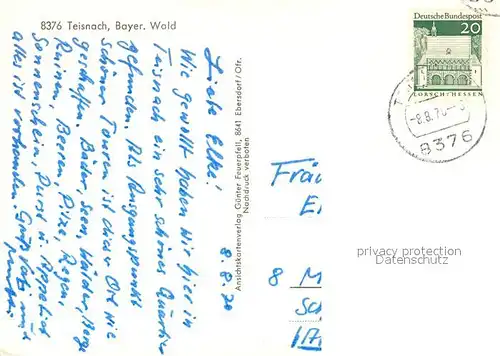 8376 Teisnach, Bayer. Wald
Deutsche Bundespost
20
LORSCH/HESSEN
-8.8.70-
8376
8.8.70
Liebe Elke!
Wie gewollt haben wir hier in
Teisnach ein sehr schönes Quartier
gefunden. Als Ausgangspunkt
schöner Touren ist dieser Ort wie
geschaffen. Bäder, Seen, Wälder, Berge
Ruinen, Beeren, Pilze, Regen,
Sonnenschein, Durst u. Appetit
alles ist vorhanden. Gruß
Ansichtskartenverlag Günter Feuerpfeil, 8641 Ebersdorf/Ofr.
Nachdruck verboten
Fräu
E
8 M
Sch
privacy protection
Datenschutz